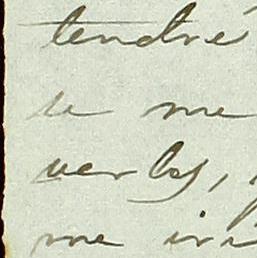 tendré
te me
verbs,
me iri